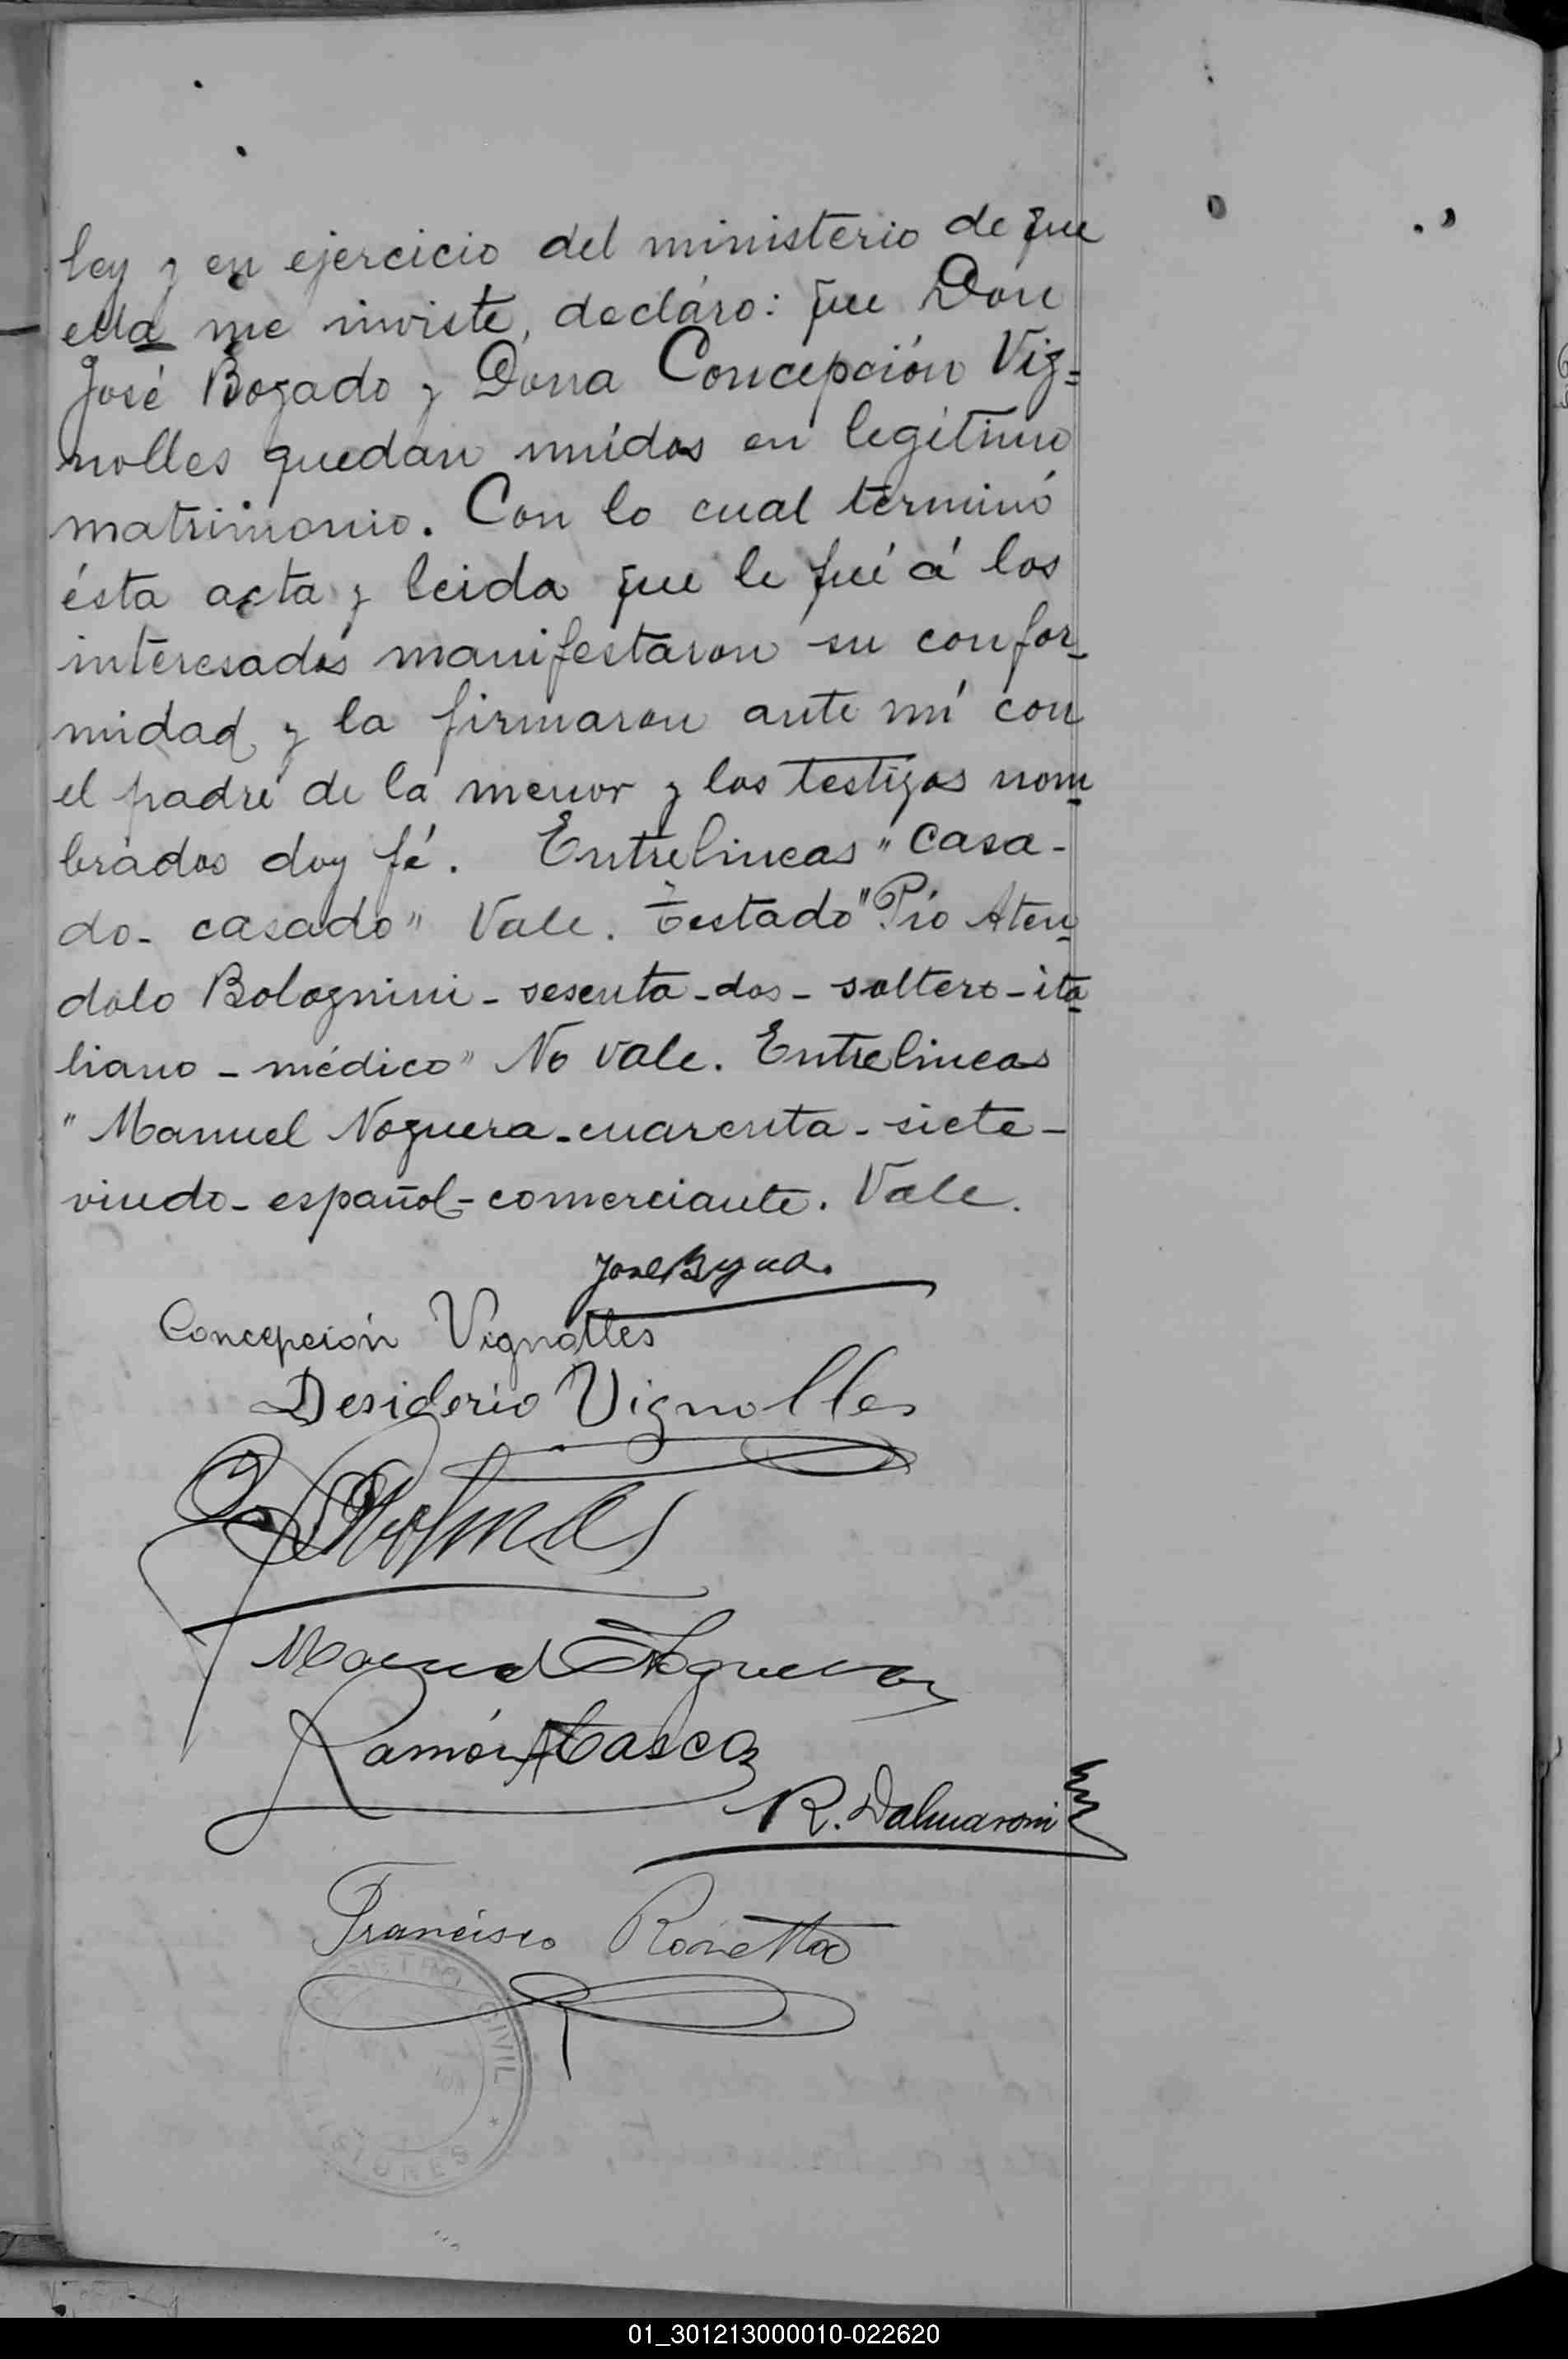 ley y en ejercicio del ministerio de que
ella me inviste, declaro: que Don
José Bogado y Doña Concepción Vig=
nolles quedan unidos en legítimo
matrimonio. Con lo cual terminó
ésta acta y leida que le fué á los
interesados manifestaron su confor-
midad y la firmaron ante mí con
el padre de la menor y los testigos nom-
brados doy fé. Entrelineas "casa-
do- casado" Vale. Testado "Pio Aten-
dolo Bolognini - sesenta - dos - soltero - ita-
liano - médico" No vale. Entrelineas
"Manuel Noguera - cuarenta - siete -
viudo - español - comerciante. Vale.
José
Concepción Vignolles
Desiderio Vignolles
Manuel Noguera
Ramón
R. Dalmaroni
Francisco
REGISTRO CIVIL
MISIONES
01_301213000010-022620